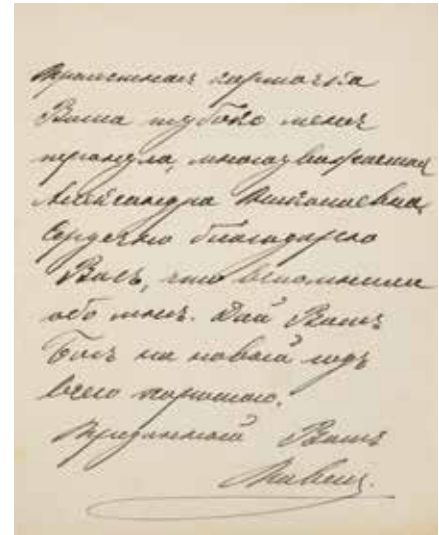 карточка
Ваша глубоко меня
тронула, многоуважаемая
Александра Николаевна,
Сердечно благодарю
Васъ, что вспомнили
обо мнѣ. Дай Вамъ
Богъ на новый годъ
всего хорошаго.
Преданный Вамъ